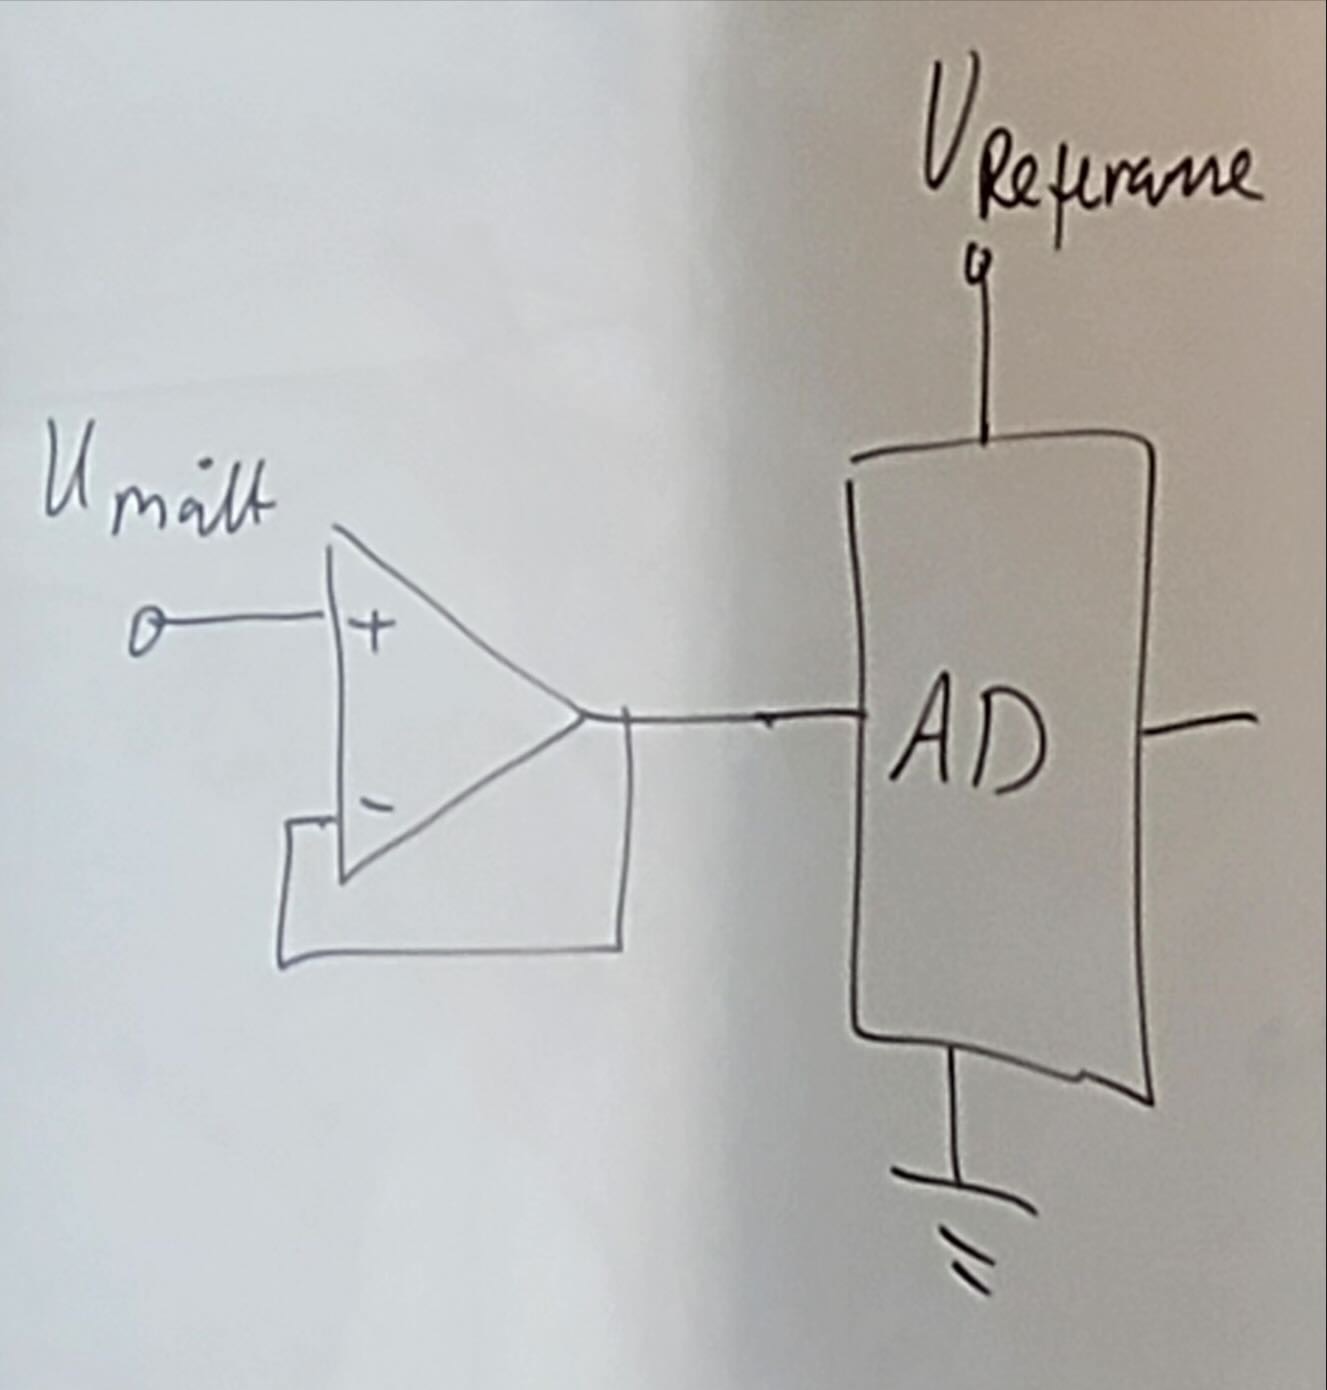 U Referanse
U målt
+
-
AD